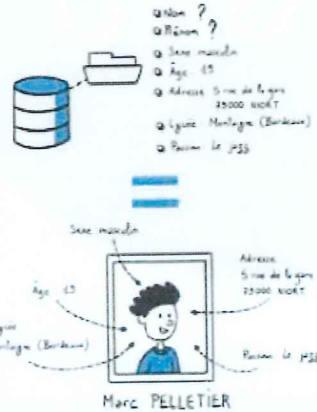 Nom ?
Prénom ?
Sexe masculin
Âge 15
Adresse 5 rue de la gare
79000 NIORT
Lycée Montaigne (Bordeaux)
Passion le jazz
Sexe masculin
Âge 15
Adresse
5 rue de la gare
79000 NIORT
Montaigne (Bordeaux)
Passion le jazz
Marc PELLETIER